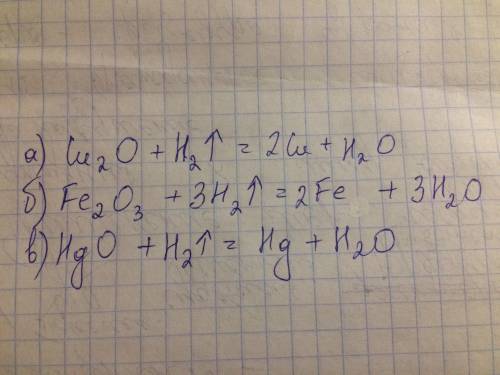 а) Cu₂O + H₂↑ = 2Cu + H₂O
б) Fe₂O₃ + 3H₂↑ = 2Fe + 3H₂O
в) HgO + H₂↑ = Hg + H₂O